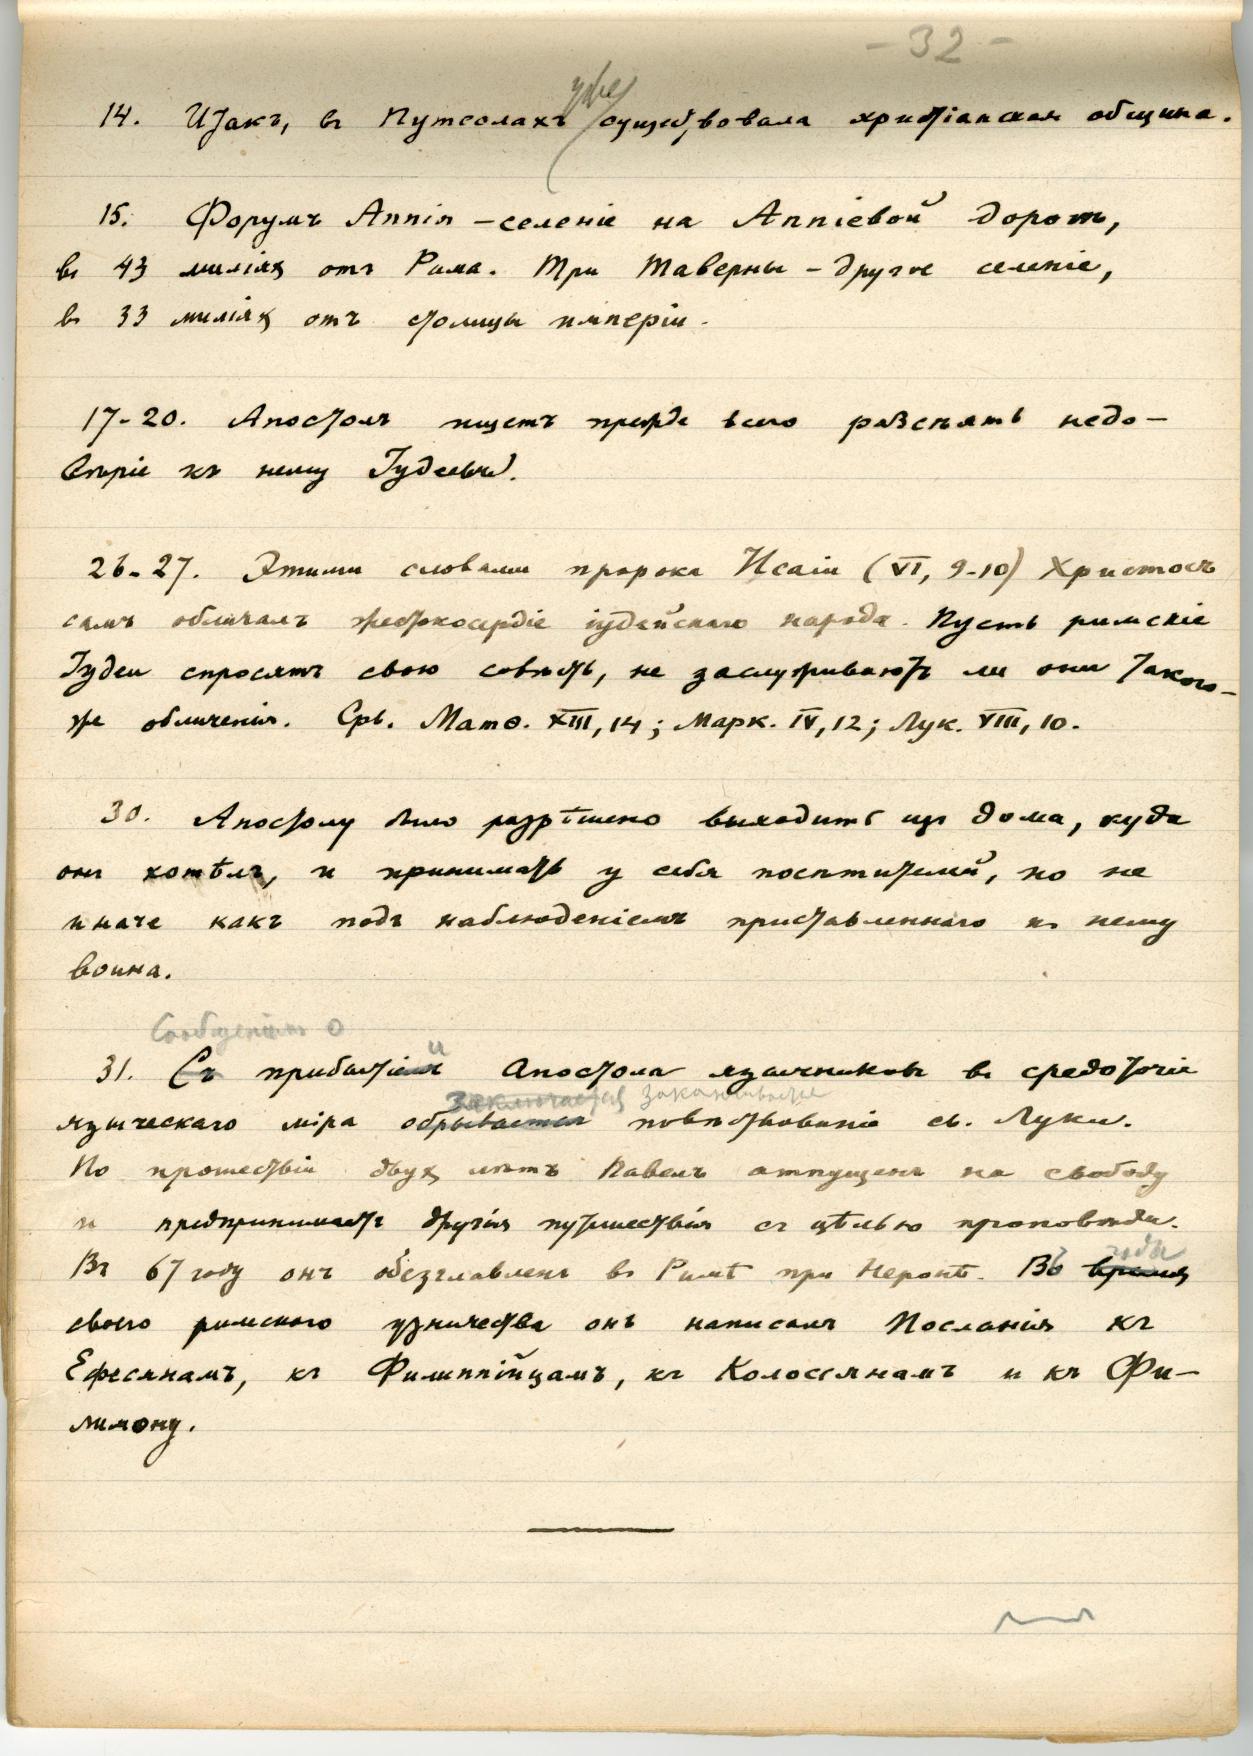 - 32 -
уже
14. Итакъ, въ Путеолахъ существовала христіанская община.
15. Форумъ Аппія – селеніе на Аппіевой дорогѣ,
въ 43 миляхъ отъ Рима. Три Таверны – другое селеніе,
въ 33 миляхъ отъ столицы имперіи.
17-20. Апостолъ ищетъ прежде всего разсѣять недо-
вѣріе къ нему Іудеевъ.
26-27. Этими словами пророка Исаіи (VI, 9-10) Христосъ
самъ обличалъ жестокосердіе іудейскаго народа. Пусть римскіе
Іудеи спросятъ свою совѣсть, не заслуживаютъ ли они такого-
же обличенія. Срв. Матѳ. XIII, 14; Марк. IV, 12; Лук. VIII, 10.
30. Апостолу было разрѣшено выходить изъ дома, куда
онъ хотѣлъ, и принимать у себя посѣтителей, но не
иначе какъ подъ наблюденіемъ приставленнаго къ нему
воина.
Сообщеніемъ о
31. Съ прибытіемъ и Апостола язычниковъ въ средоточіе
заключается заканчивается
языческаго міра обрывается повѣствованіе св. Луки.
По прошествіи двухъ лѣтъ Павелъ отпущенъ на свободу
и предпринимаетъ другія путешествія съ цѣлью проповѣди.
годы
Въ 67 году онъ обезглавленъ въ Римѣ при Неронѣ. Въ время
своего римскаго узничества онъ написалъ Посланія къ
Ефесянамъ, къ Филиппійцамъ, къ Колоссянамъ и къ Фи-
лимону.